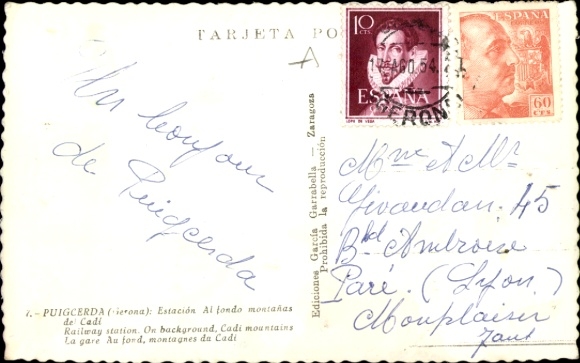 TARJETA PO
A
10
CTS.
ESPAÑA
LOPE DE VEGA
17 AGO 54
GERONA
ESPAÑA
60
CTS
Un bonjour
de Puigcerda
Mme & Mr
Givaudan. 45
Bd Ambroise
Paré. (Lyon)
Monplaisir
Ediciones García Garrabella — Zaragoza
Prohibida la reproducción
7. - PUIGCERDA (Gerona): Estación Al fondo montañas
de Cadí
Railway station. On background, Cadi mountains
La gare Au fond, montagnes du Cadi